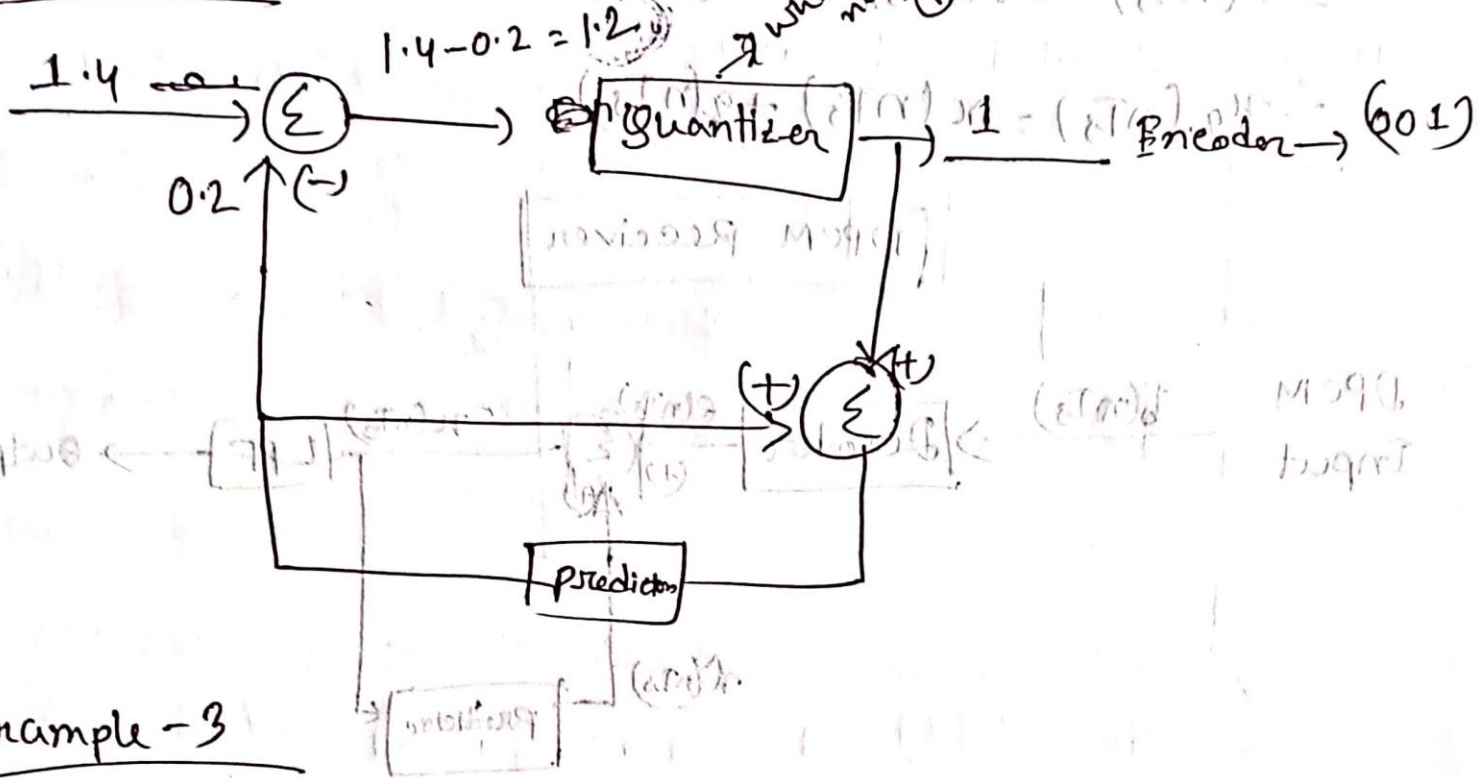 1.4
1.4-0.2 = 1.2
Σ
Quantizer
1
Encoder → (001)
0.2
(-)
(+)
(+)
Σ
predictor
xample - 3